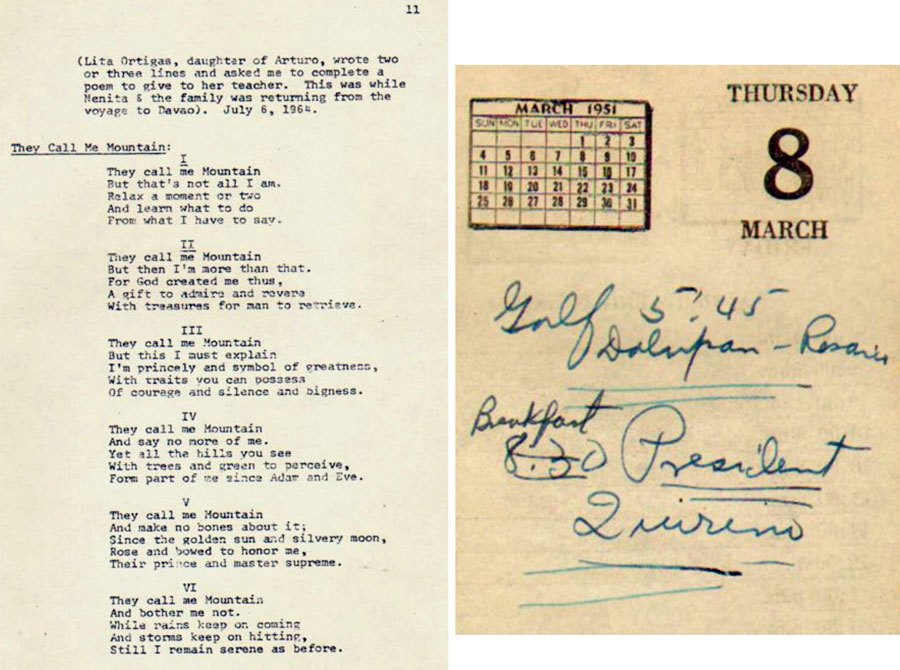 11
(Lita Ortigas, daughter of Arturo, wrote two
or three lines and asked me to complete a
poem to give to her teacher. This was while
Nenita & the family was returning from the
voyage to Davao). July 6, 1964.
They Call Me Mountain:
I
They call me Mountain
But that's not all I am.
Relax a moment or two
And learn what to do
From what I have to say.
II
They call me Mountain
But then I'm more than that.
For God created me thus,
A gift to admire and revere
With treasures for man to retrieve.
III
They call me Mountain
But this I must explain
I'm princely and symbol of greatness,
With traits you can possess
Of courage and silence and bigness.
IV
They call me Mountain
And say no more of me.
Yet all the hills you see
With trees and green to perceive,
Form part of me since Adam and Eve.
V
They call me Mountain
And make no bones about it;
Since the golden sun and silvery moon,
Rose and bowed to honor me,
Their prince and master supreme.
VI
They call me Mountain
And bother me not.
While rains keep on coming
And storms keep on hitting,
Still I remain serene as before.
MARCH 1951
SUN MON TUE WED THU FRI SAT
1 2 3
4 5 6 7 8 9 10
11 12 13 14 15 16 17
18 19 20 21 22 23 24
25 26 27 28 29 30 31
THURSDAY
8
MARCH
Golf 5:45
Dalupan - Rosario
Breakfast
8:30 President
Quirino